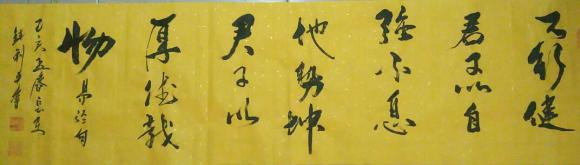 天行健
君子以自
强不息
地勢坤
君子以
厚德載
物 易經句